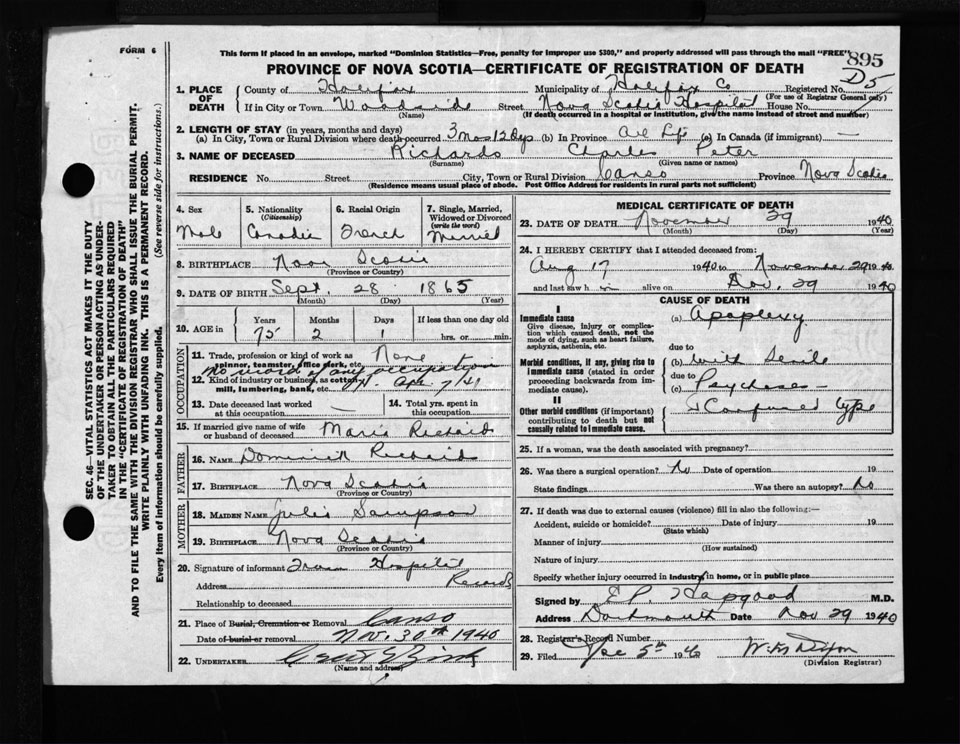 FORM 6
This form if placed in an envelope, marked "Dominion Statistics—Free, penalty for improper use $300," and properly addressed will pass through the mail "FREE"
895
PROVINCE OF NOVA SCOTIA—CERTIFICATE OF REGISTRATION OF DEATH
D5
1. PLACE OF DEATH
County of Halifax Municipality of Halifax Co Registered No.
(For use of Registrar General only)
If in City or Town Woodside Street Nova Scotia Hospital House No.
(Name) (If death occurred in a hospital or institution, give the name instead of street and number)
2. LENGTH OF STAY (in years, months and days)
(a) In City, Town or Rural Division where death occurred 3 Mos 12 Dys (b) In Province All Life (c) In Canada (if immigrant) —
3. NAME OF DECEASED Richards Charles Peter
(Surname) (Given name or names)
RESIDENCE No. Street City, Town or Rural Division Canso Province Nova Scotia
(Residence means usual place of abode. Post Office Address for residents in rural parts not sufficient)
4. Sex Male
5. Nationality (Citizenship)
6. Racial Origin French
7. Single, Married, Widowed or Divorced (write the word) Married
8. BIRTHPLACE Nova Scotia
(Province or Country)
9. DATE OF BIRTH Sept. 28 1865
(Month) (Day) (Year)
10. AGE in Years Months Days If less than one day old
75 2 1 hrs. or min.
OCCUPATION
11. Trade, profession or kind of work as spinner, teamster, office clerk, etc. None
no record of any occupation
Apr. 7/41
12. Kind of industry or business, as cotton mill, lumbering, bank, etc.
13. Date deceased last worked at this occupation —
14. Total yrs. spent in this occupation
15. If married give name of wife or husband of deceased Marie Richards
FATHER
16. NAME Dominick Richards
17. BIRTHPLACE Nova Scotia
(Province or Country)
MOTHER
18. MAIDEN NAME Julie Sampson
19. BIRTHPLACE Nova Scotia
(Province or Country)
20. Signature of informant From Hospital
Address Records
Relationship to deceased
21. Place of Burial, Cremation or Removal Canso
Date of burial or removal Nov. 30th 1940
22. UNDERTAKER
(Name and address)
MEDICAL CERTIFICATE OF DEATH
23. DATE OF DEATH November 29 1940
(Month) (Day) (Year)
24. I HEREBY CERTIFY that I attended deceased from:
Aug 17 1940 to November 29 1940
and last saw h im alive on Nov. 29 1940
CAUSE OF DEATH
I
Immediate cause
Give disease, injury or complication which caused death, not the mode of dying, such as heart failure, asphyxia, asthenia, etc.
(a) Apoplexy
due to
Morbid conditions, if any, giving rise to immediate cause (stated in order proceeding backwards from immediate cause).
(b) with Senile
due to
(c) Psychoses —
II
Other morbid conditions (if important) contributing to death but not causally related to immediate cause.
Confused type
25. If a woman, was the death associated with pregnancy?
26. Was there a surgical operation? No Date of operation 19
State findings Was there an autopsy? No
27. If death was due to external causes (violence) fill in also the following:—
Accident, suicide or homicide? Date of injury 19
(State which)
Manner of injury
(How sustained)
Nature of injury
Specify whether injury occurred in industry, in home, or in public place
Signed by E P. Hapgood M.D.
Address Dartmouth Date Nov 29 1940
28. Registrar's Record Number
29. Filed Dec 5th 1940
(Division Registrar)
SEC. 46—VITAL STATISTICS ACT MAKES IT THE DUTY
OF THE UNDERTAKER OR PERSON ACTING AS UNDER-
TAKER TO OBTAIN ALL THE PARTICULARS REQUIRED
IN THE "CERTIFICATE OF REGISTRATION OF DEATH"
AND TO FILE THE SAME WITH THE DIVISION REGISTRAR WHO SHALL ISSUE THE BURIAL PERMIT.
WRITE PLAINLY WITH UNFADING INK. THIS IS A PERMANENT RECORD.
Every item of information should be carefully supplied. (See reverse side for instructions.)